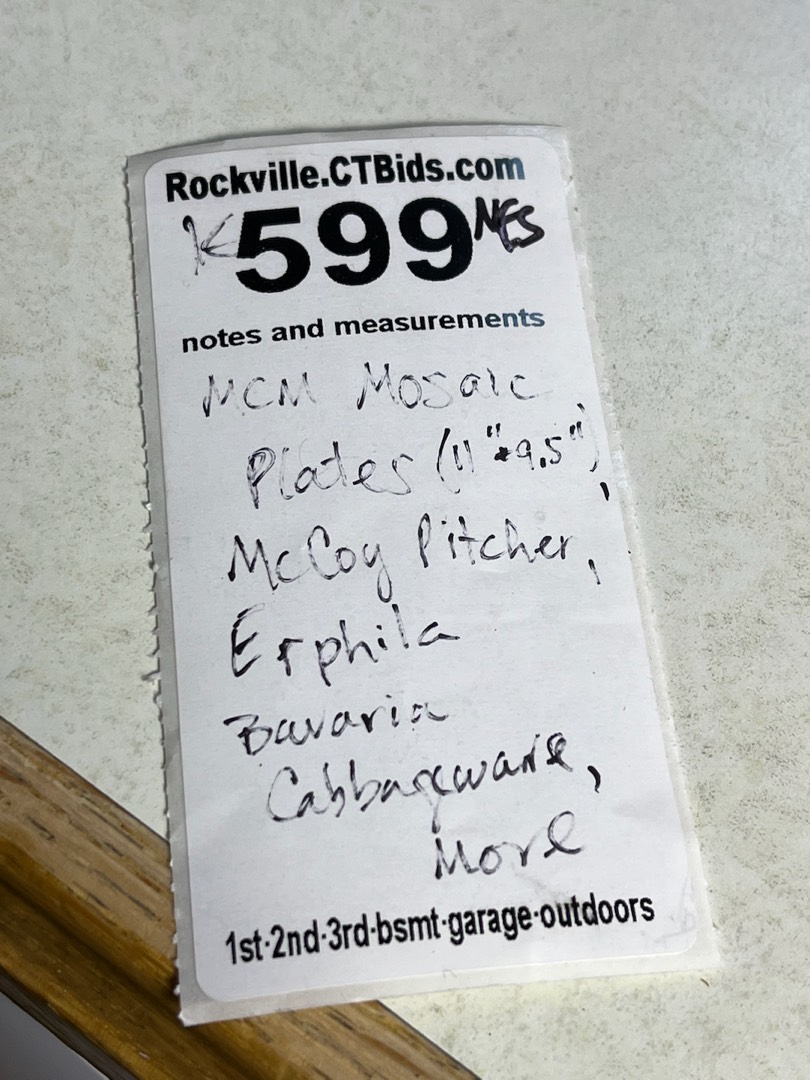 Rockville.CTBids.com
K 599 NES
notes and measurements
MCM Mosaic
Plates (11" + 9.5"),
McCoy Pitcher,
Erphila
Bavaria
Cabbageware,
More
1st·2nd·3rd·bsmt·garage·outdoors